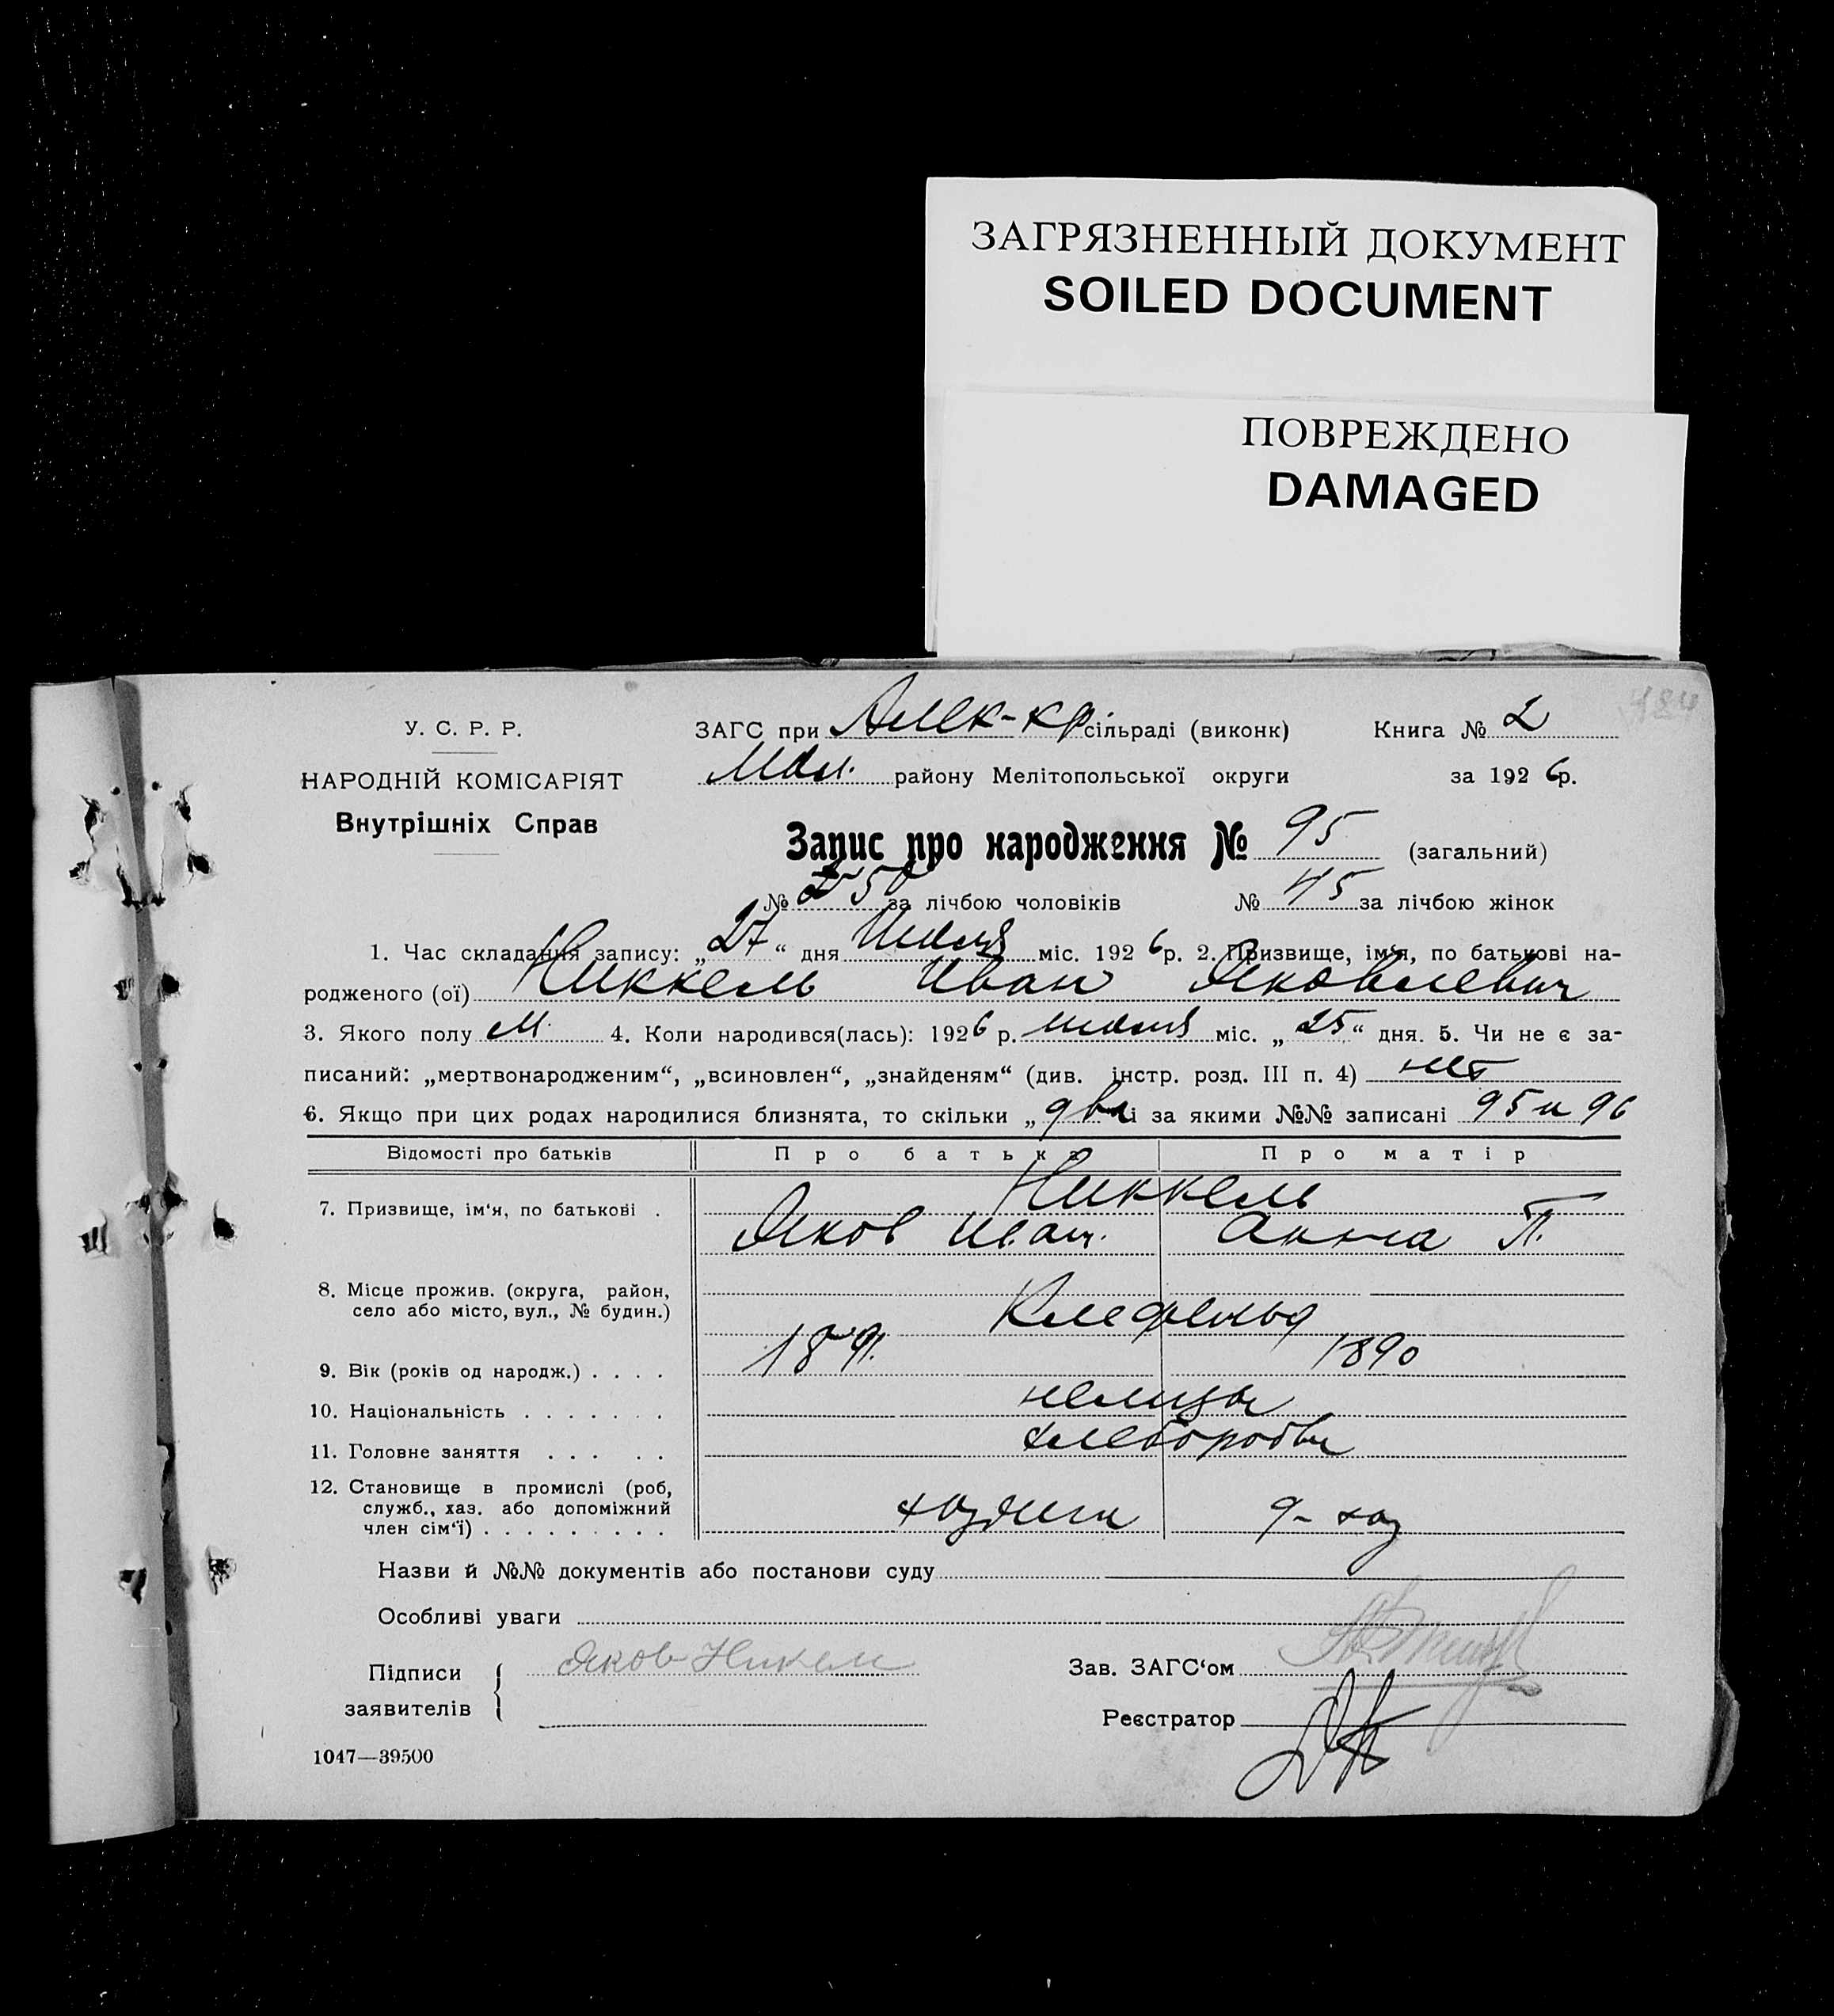 ЗАГРЯЗНЕННЫЙ ДОКУМЕНТ
SOILED DOCUMENT
ПОВРЕЖДЕНО
DAMAGED
У. С. Р. Р.
НАРОДНІЙ КОМІСАРІЯТ
Внутрішніх Справ
ЗАГС при Алек-кр сільраді (виконк) Книга № 2
Мол. району Мелітопольської округи за 1926 р.
Запис про народження № 95 (загальний)
№ 50 за лічбою чоловіків № 45 за лічбою жінок
1. Час складання запису: „27“ дня Июля міс. 1926 р. 2. Призвище, ім'я, по батькові на-
родженого (ої) Никкель Иван Яковлевич
3. Якого полу м. 4. Коли народився(лась): 1926 р. июля міс. „25“ дня. 5. Чи не є за-
писаний: „мертвонародженим“, „всиновлен“, „знайденям“ (див. інстр. розд. III п. 4) нет
6. Якщо при цих родах народилися близнята, то скільки „два і за якими №№ записані 95 и 96
Відомості про батьків Про батька Про матір
7. Призвище, ім'я, по батькові . Никкель
Яков Иван. Анна П.
8. Місце прожив. (округа, район,
село або місто, вул., № будин.) Клефельд
9. Вік (років од народж.) . . . . 1891. 1890
10. Національність . . . . . . . немцы
11. Головне заняття . . . . . хлеборобы
12. Становище в промислі (роб,
служб., хаз. або допоміжний
член сім'ї) . . . . . . . . . хозяин д- хоз
Назви й №№ документів або постанови суду
Особливі уваги
Підписи
заявителів
Яков Никель
Зав. ЗАГС'ом
Реєстратор
1047—39500